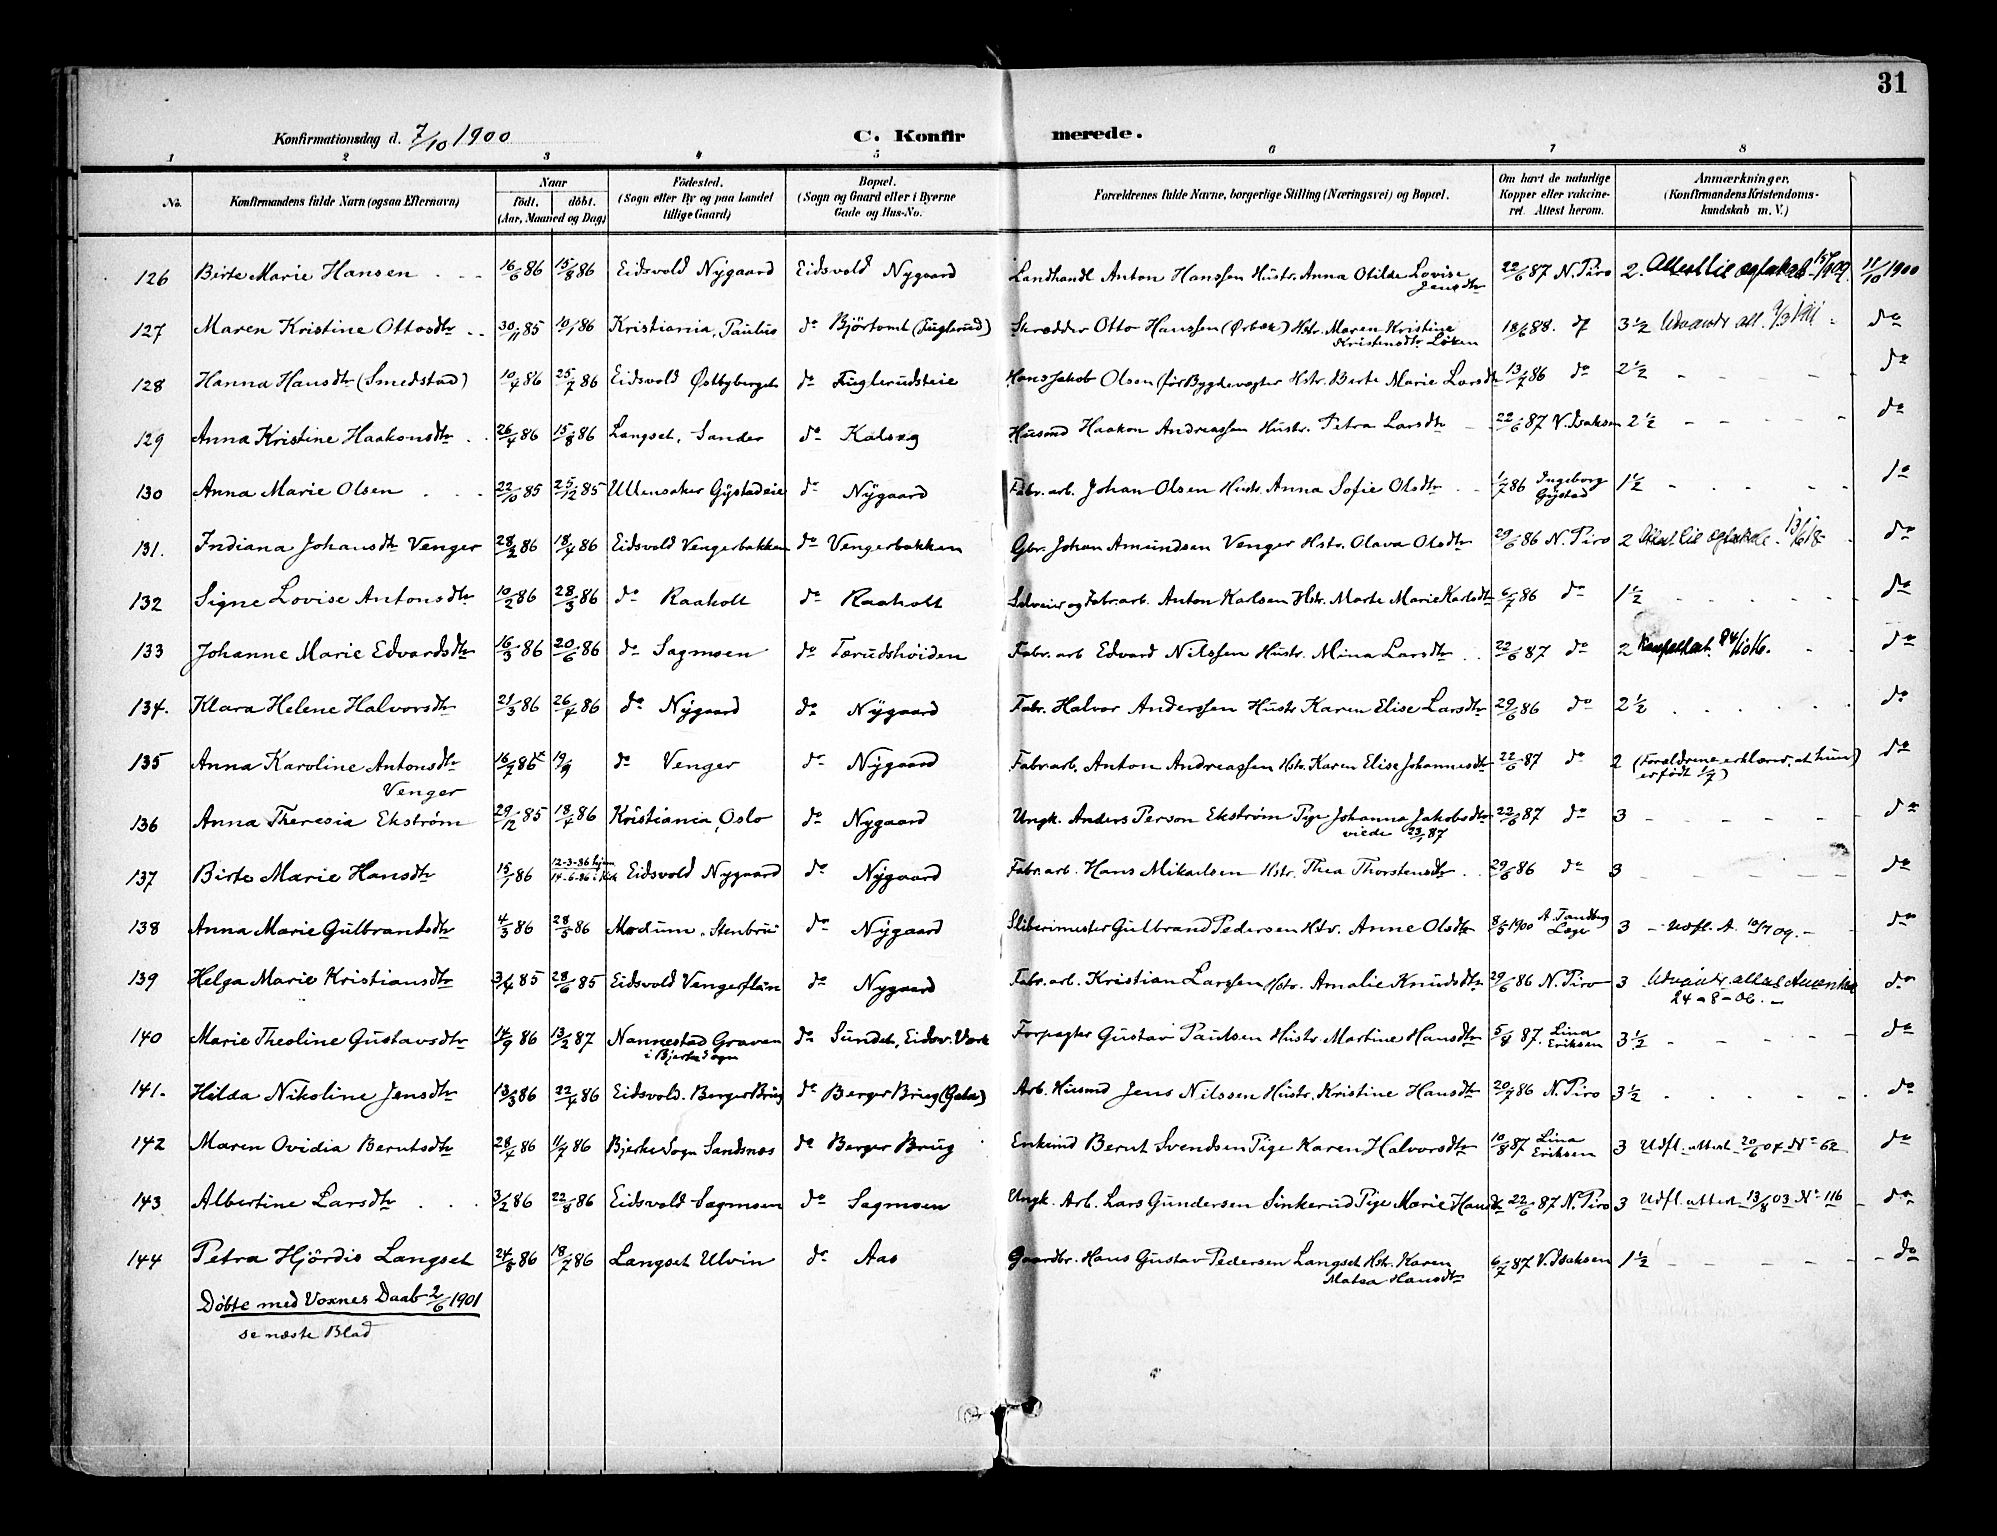 31
Konfirmationsdag d. 7/10 1900 C. Konfir merede.
1 2 3 4 5 6 7 8
No. Konfirmandens fulde Navn (ogsaa Efternavn) Naar født. døbt. (Aar, Maaned og Dag) Fødested. (Sogn eller By og paa Landet tillige Gaard) Bopæl. (Sogn og Gaard eller i Byerne Gade og Hus-No. Forældrenes fulde Navne, borgerlige Stilling (Næringsvei) og Bopæl. Om havt de naturlige Kopper eller vaccineret. Attest herom. Anmærkninger. (Konfirmandens Kristendomskundskab m. V.)
126 Birte Marie Hansen 16/6 86 15/8 86 Eidsvold Nygaard Eidsvold Nygaard Landhandl Anton Hanssen Hustr. Anna Otilde Lovise Jensdtr 22/6 87 N. Piro 2 11/10 1900
127 Maren Kristine Ottosdtr 30/11 85 10/1 86 Kristiania, Paulus do Björtomt (Fuglerud) Skrædder Otto Hanssen (Ørbæk) Hstr. Maren Kristine Kristensdtr Løken 18/6 88. do 3 1/2 do
128 Hanna Hansdtr (Smedstad) 10/4 86 25/7 86 Eidsvold Østbyberget do Fuglerudsteie Hans Jakob Olsen (før Bygdevægter Hstr. Berte Marie Larsdtr 13/7 86 do 2 1/2 do
129 Anna Kristine Haakonsdtr 26/4 86 15/8 86 Langset, Sander do Kolsæg Husmd Haakon Andreassen Hustr. Petra Larsdtr 22/6 87 V. Isaksen 2 1/2 do
130 Anna Marie Olsen 22/10 85 25/12 85 Ullensaker Gystadeie do Nygaard Fabr. arb. Johan Olsen Hustr. Anna Sofie Olsdtr 1/7 86 Ingeborg Gystad 1 1/2 do
131. Indiana Johansdtr Venger 28/2 86 18/4 86 Eidsvold Vengerbakken do Vengerbakken Gbr. Johan Amundsen Venger Hstr. Olava Olsdtr 29/6 86 N. Piro 2 do
132 Signe Lovise Antonsdtr 10/2 86 28/3 86 do Raaholt do Raaholt Selveier og Fabr. arb. Anton Karlsen Hstr. Marte Marie Karlsdtr 6/7 86 do 1 1/2 do
133 Johanne Marie Edvardsdtr 16/3 86 20/6 86 do Sagmoen do Tærudshøiden Fabr. arb Edvard Nilssen Hustr. Mina Larsdtr 22/6 87 do 2 do
134. Klara Helene Halvorsdtr 21/3 86 26/4 86 do Nygaard do Nygaard Fabr. Halvor Anderssen Hustr Karen Elise Larsdtr 29/6 86 do 2 1/2 do
135 Anna Karoline Antonsdtr Venger 16/7 85 19/9 do Venger do Nygaard Fabr. arb. Anton Andreassen Hstr. Karen Elise Johannesdtr 22/6 87 do 2 (Forældrene erklærer, at hun er født 1/7) do
136 Anna Theresia Ekström 29/12 85 18/4 86 Kristiania, Oslo do Nygaard Ungk. Anders Person Ekström Pige Johanna Jakobsdtr viede 22/6 87 do 3 do
137 Birte Marie Hansdtr 15/1 86 12-3-86 hjem 14-6-86 i Kirk Eidsvold Nygaard do Nygaard Fabr. arb. Hans Mikaelsen Hstr. Thea Thorstensdtr 29/6 86 do 3 do
138 Anna Marie Gulbrandsdtr 4/3 86 28/5 86 Modum, Stenbru do Nygaard Sliberimester Gulbrand Pedersen Hstr. Anne Olsdtr 8/5 1900 A. Tandberg Læge 3 Udfl. A. 10/7 09. do
139 Helga Marie Kristiansdtr 3/4 85 28/6 85 Eidsvold Vengerflan do Nygaard Fabr. arb. Kristian Larssen Hstr. Amalie Knudsdtr 29/6 86 N. Piro 3 Udvandr. attest Amerika 24-8-06. do
140 Marie Theoline Gustavsdtr 14/9 86 13/2 87 Nannestad Graven i Bjerke Sogn do Sundet, Eidsv. Værk Forpagter Gustav Paulsen Hustr. Martine Hansdtr 5/8 87. Lina Eriksen 3 1/2 do
141. Hilda Nikoline Jensdtr 13/3 86 22/4 86 Eidsvold. Berger Brug do Berger Brug (Gata) Arb. Husmd Jens Nilssen Hustr. Kristine Hansdtr 20/7 86 N. Piro 3 1/2 do
142 Maren Ovidia Berntsdtr 28/4 86 11/7 86 Bjerke Sogn Sandsnæs do Berger Brug Enkemd Bernt Svendsen Pige Karen Halvorsdtr 10/8 87 Lina Eriksen 3 Udfl. attest 20/6 04 No 62 do
143 Albertine Larsdtr 3/2 86 22/8 86 Eidsvold Sagmoen do Sagmoen Ungk. Arb. Lars Gundersen Sinkerud Pige Marie Hansdtr 22/6 87 N. Piro 3 Udfl. attest 13/8 03 No 116 do
144 Petra Hjördis Langset 24/3 86 18/7 86 Langset Ulvin do Aas Gaardbr. Hans Gustav Pedersen Langset Hstr. Karen Matea Hansdtr 6/7 87 V. Isaksen 1 1/2 do
Döbte med Voxnes Daab 2/6 1901
se næste Blad